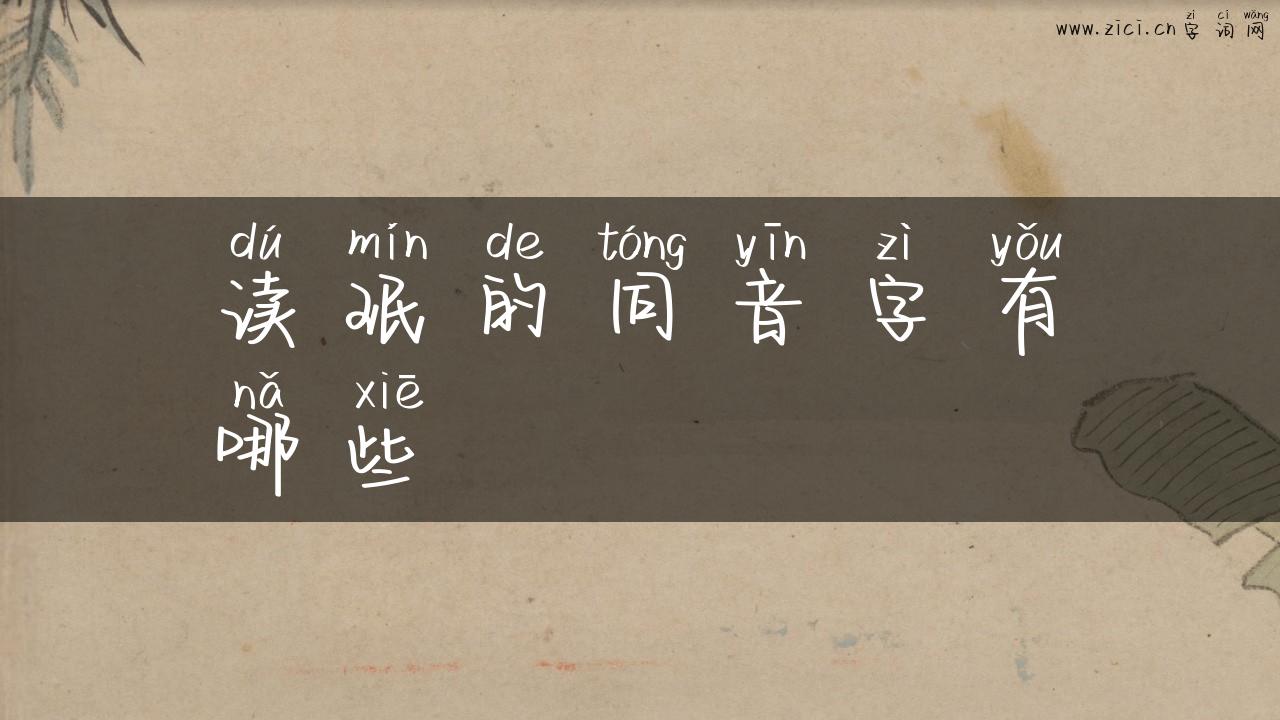 zì cí wǎng
www.zici.cn 字 词 网
dú mín de tóng yīn zì yǒu
读 珉 的 同 音 字 有
nǎ xiē
哪 些